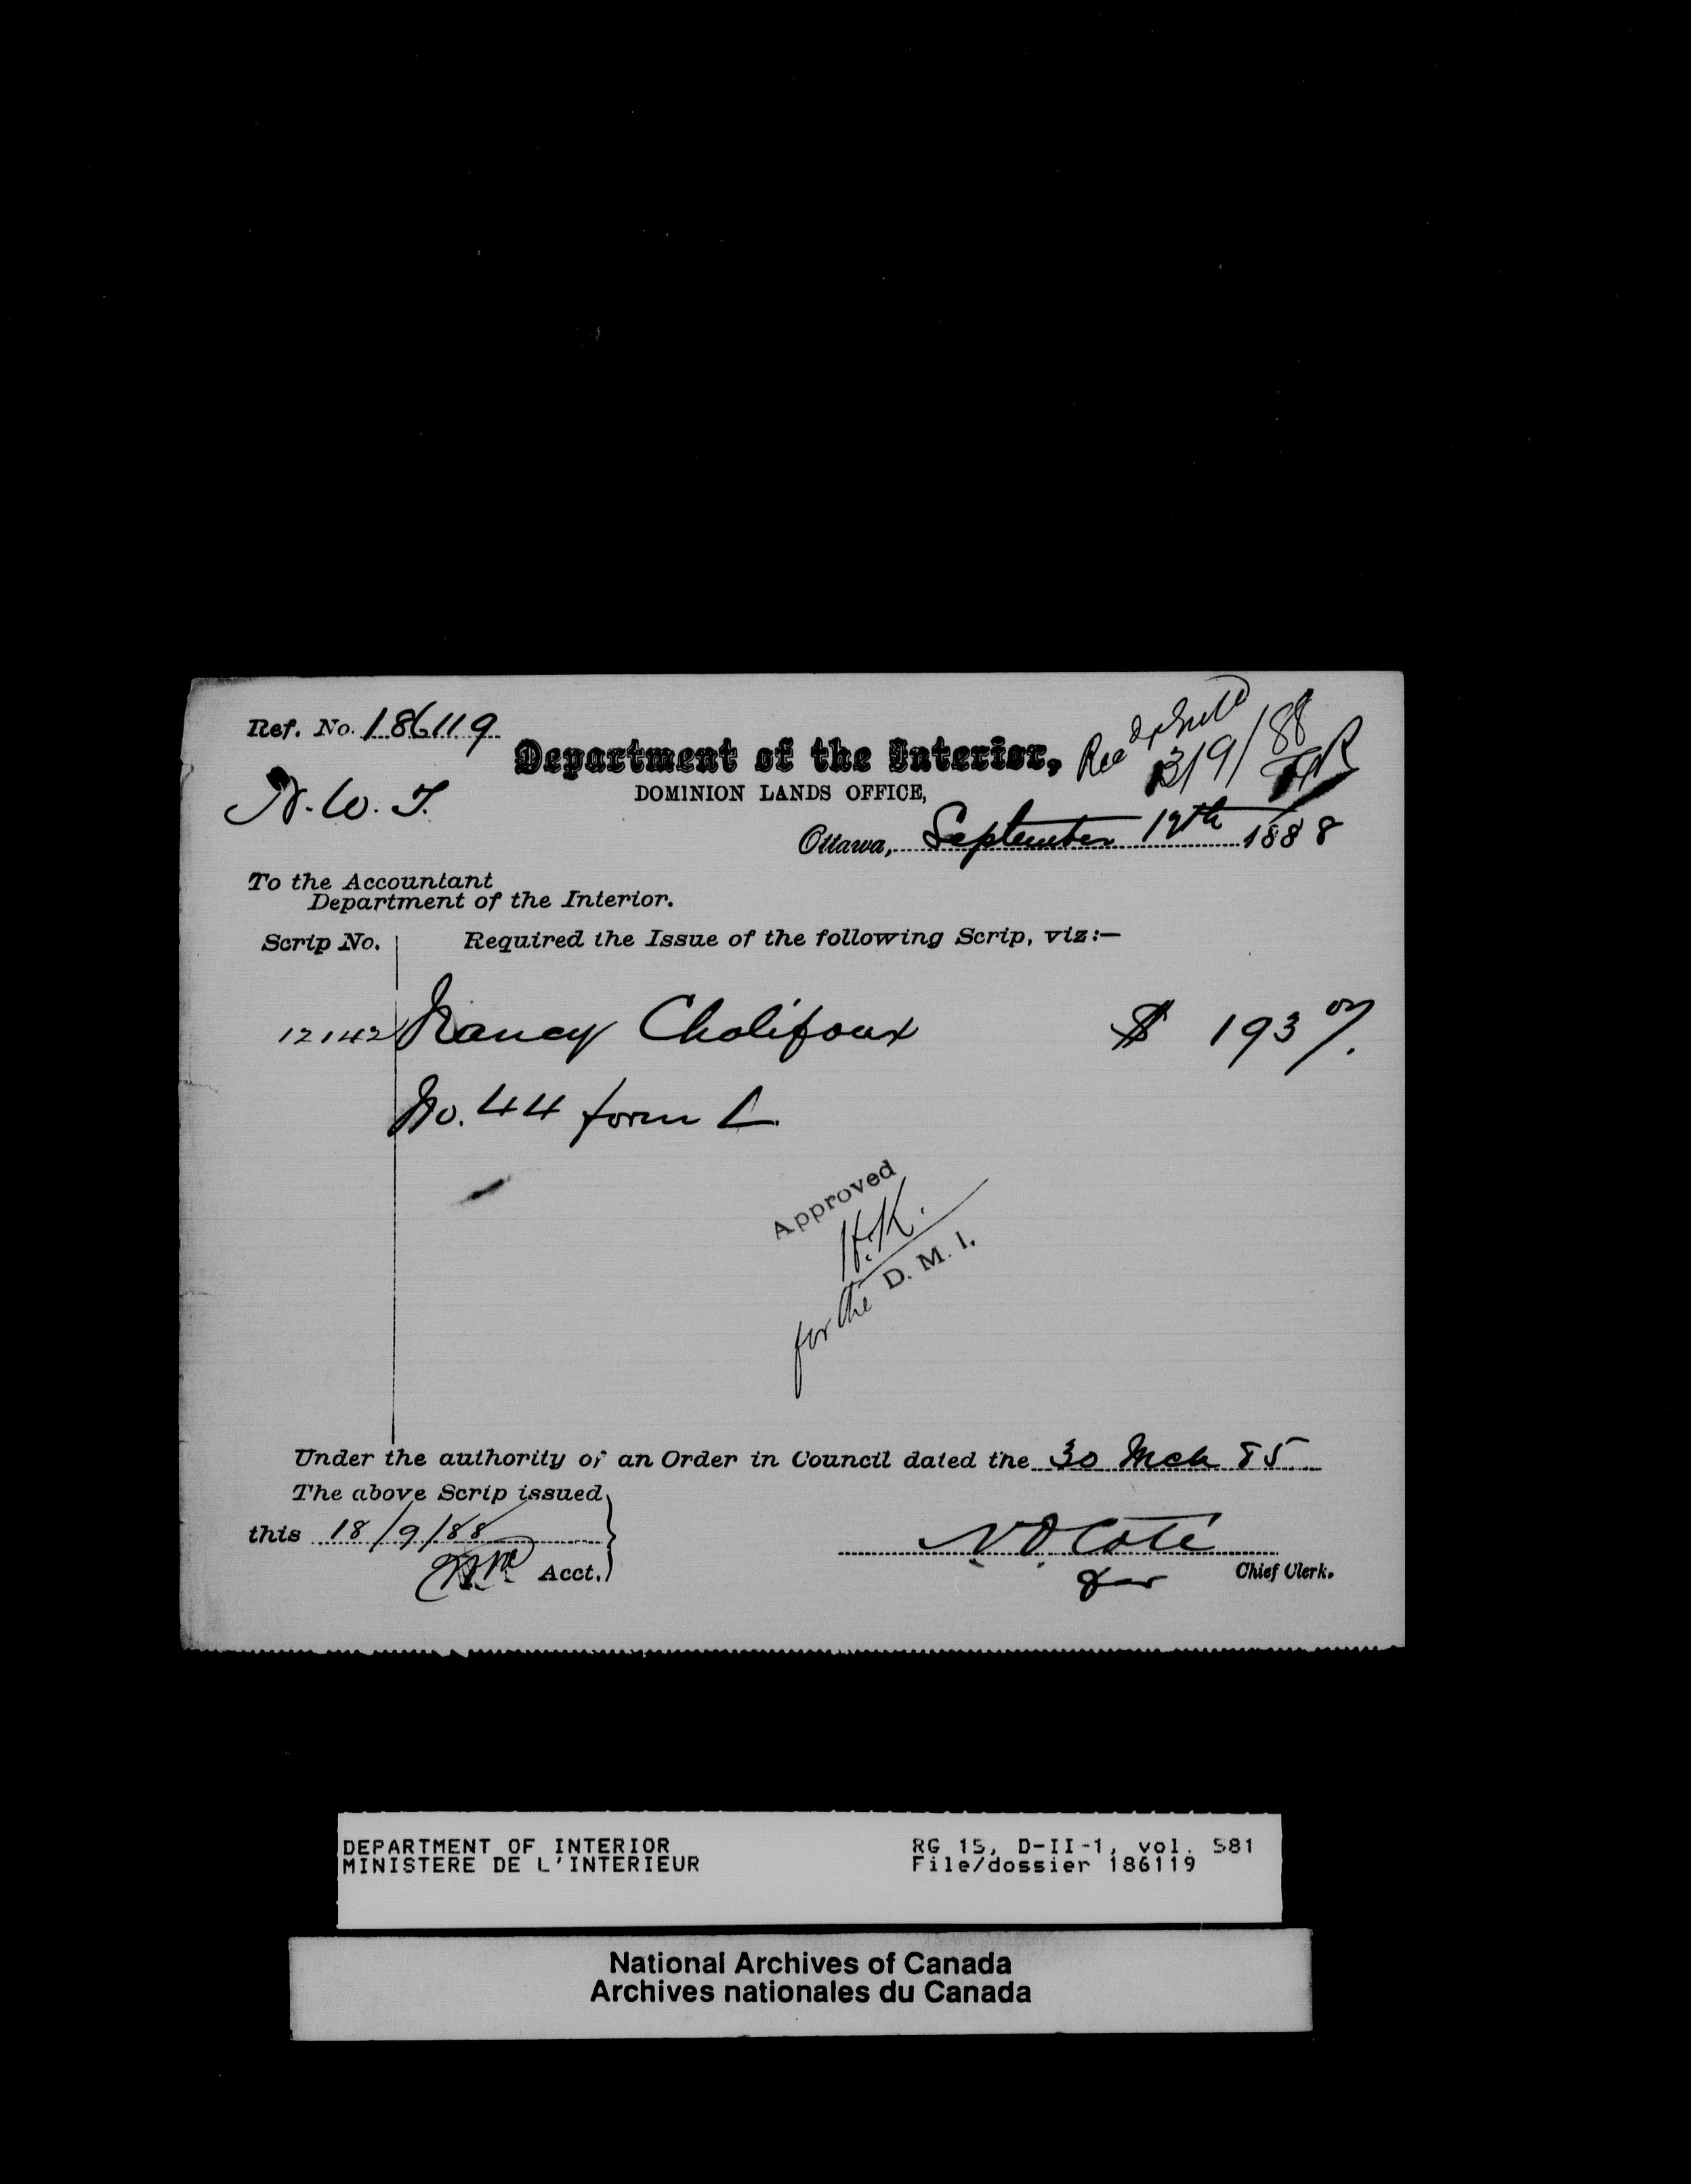 Ref. No. 186119
N.W.T.
Department of the Interior,
Rec
13/9/88
DOMINION LANDS OFFICE,
Ottawa, September 12th 1888
To the Accountant
Department of the Interior.
Scrip No. Required the Issue of the following Scrip, viz:—
12142 Nancy Chalifoux $ 193 07/.
No. 44 form L
Approved
H.K.
for the D. M. I.
Under the authority of an Order in Council dated the 30 Mch 85
The above Scrip issued
this 18/9/88
Acct.
N.O. Coté
for Chief Clerk.
DEPARTMENT OF INTERIOR
MINISTERE DE L'INTERIEUR
RG 15, D-II-1, vol. 581
File/dossier 186119
National Archives of Canada
Archives nationales du Canada